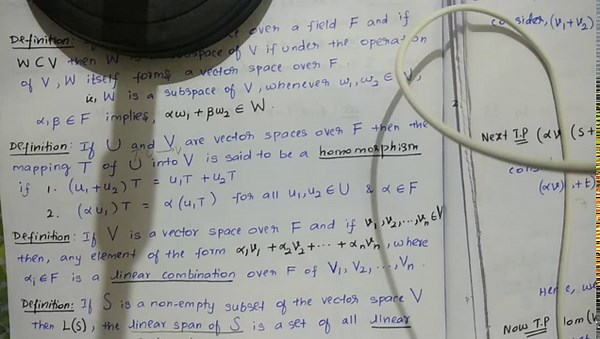 Definition: over a field F and if
W ⊂ V then W of V if under the operation
of V, W itself forms a vector space over F.
ie, W is a subspace of V, whenever w₁, w₂ ∈
α, β ∈ F implies, αw₁ + βw₂ ∈ W.
Definition: If U and V are vector spaces over F then the
mapping T of U into V is said to be a homomorphism
if 1. (u₁ + u₂) T = u₁T + u₂T
2. (αu₁) T = α (u₁T) for all u₁, u₂ ∈ U & α ∈ F
Definition: If V is a vector space over F and if v₁, v₂, ..., vₙ ∈ V
then, any element of the form α₁v₁ + α₂v₂ + ... + αₙvₙ, where
αᵢ ∈ F is a linear combination over F of V₁, V₂, ..., Vₙ.
Definition: If S is a non-empty subset of the vector space V
then L(S), the linear span of S is a set of all linear
(v₁ + v₂)
2.
Next T.P (αv (s+
(αv) + t)
Now T.P